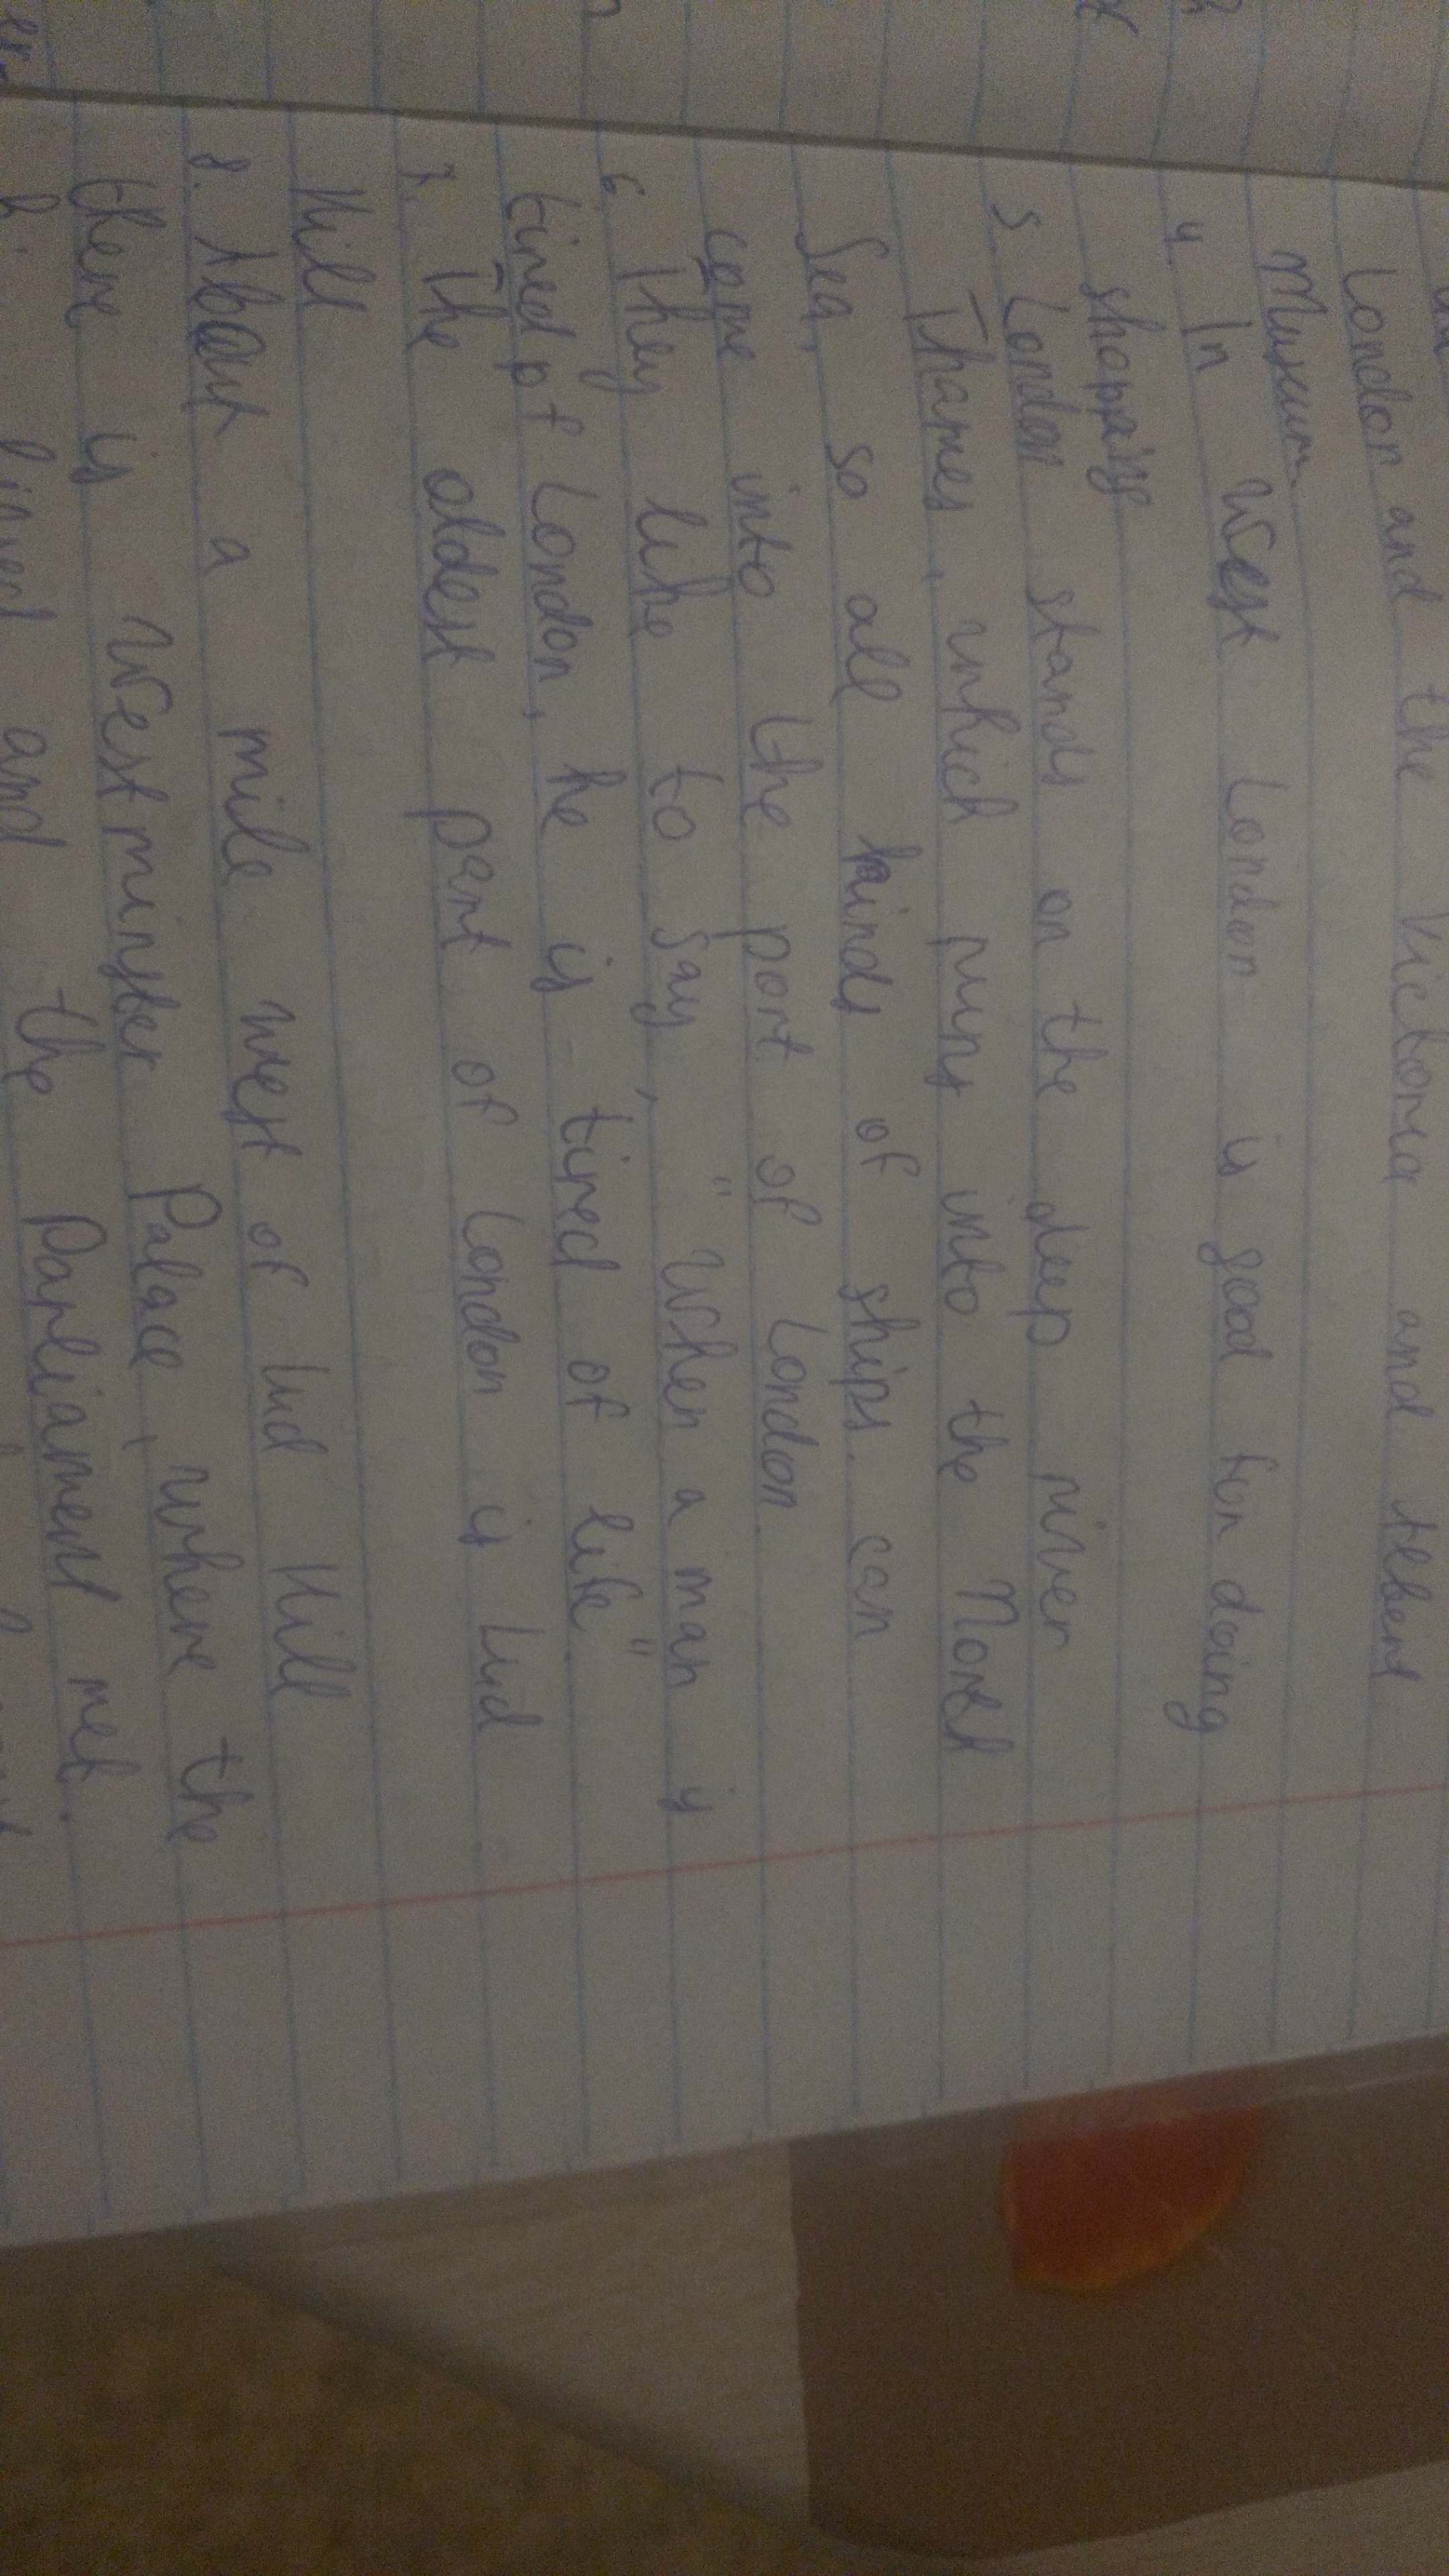 London and the Victoria and Albert
Museum
4. In West London is good for doing
shopping
5. London stands on the deep river
Thames, which runs into the North
Sea, so all kinds of ships can
come into the port of London.
6. They like to say, "When a man is
tired of London, he is tired of life".
7. The oldest part of London is Lud
Hill
8. About a mile west of Lud Hill
there is Westminster Palace, where the
lived and the Parliament met.